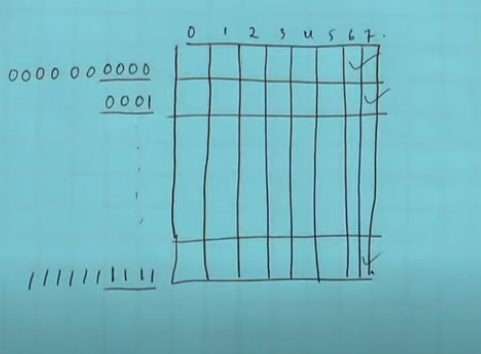 0 1 2 3 4 5 6 7
0000 00 0000
0001
1111111111